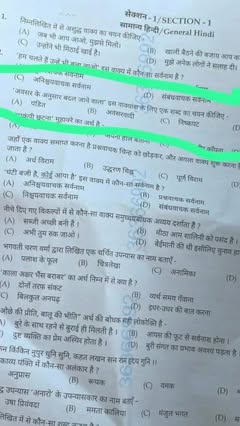 सेक्शन - 1/SECTION - 1
सामान्य हिन्दी/General Hindi
निम्नलिखित में से अशुद्ध वाक्य का चयन कीजिए
(A) जब भी आप आओ, मुझसे मिलो।
(B) खाली बैठने की बजाय आप
(C) उन्होंने भी मिठाई खाई है।
(D) मुझे अनेक लोगों ने सलाह दी।
'हम चलते हैं उन्हें भी बुला लाओ' इस वाक्य में कौन-सा सर्वनाम है ?
(C) अनिश्चयवाचक सर्वनाम
(D) संबंधवाचक सर्वनाम
'अवसर के अनुसार बदल जाने वाला' इस वाक्यांश के लिए एक शब्द का चयन कीजिए :
(A) पंडित (B) अवसरवादी (C) निष्कपट (D)
छूटना' मुहावरे का अर्थ है
जहाँ एक वाक्य समाप्त करना है प्रश्नवाचक चिन्ह को छोड़कर, और आपस वाक्य शुरू करना है
जाता है ?
(A) अर्ध विराम (B) उद्धरण चिह्न (C) पूर्ण विराम (D)
'घंटी बजी है, कोई आया है' इस वाक्य में कौन-सा सर्वनाम है ?
(A) अनिश्चयवाचक सर्वनाम (B) प्रश्नवाचक सर्वनाम
(C) निश्चयवाचक सर्वनाम (D) संबंधवाचक सर्वनाम
नीचे दिए गए विकल्पों में से कौन-सा वाक्य समुच्चयबोधक अव्यय दर्शाता है ?
(A) (B) मीठा आम सालिनी को पसंद है।
(C) अभी तुम रुक जाओ। (D) बेईमानी की थी इसीलिए चुनाव हा
भगवती चरण वर्मा द्वारा लिखित एक चर्चित उपन्यास का नाम बताएँ -
(A) पलाश के फूल (B) चित्रलेखा (C) अनामिका (D)
'काला अक्षर भैंस बराबर' का अर्थ निम्न में से क्या है ?
(A) दोनों तरफ संकट (B) व्यर्थ समय गँवाना
(C) बिलकुल अनपढ़ (D) इधर-उधर की बात करना
ओछे की प्रीति, बालू की भीति" अर्थ की बोधक सही लोकोक्ति है -
बुरे के साथ रहने से बुराई ही मिलती है। (B) आपस की फूट से सर्वनाश होना।
दुष्ट व्यक्ति का प्रेम अस्थिर होता है। (D) बुरी संगत का प्रभाव अवश्य पड़ता है
किंकिन नूपुर धुनि सुनि, कहत लखन सन राम हृदय गुनि।।
काव्य पंक्ति में कौन-सा अलंकार है ?
अनुप्रास (B) रूपक (C) यमक (D)
उपन्यास 'अनारो' के उपन्यासकार का नाम बताएँ -
उषा प्रियंवदा (B) ममता कालिया (C) मंजुल भगत (D)
लिखित में से कौन-सा शब्द